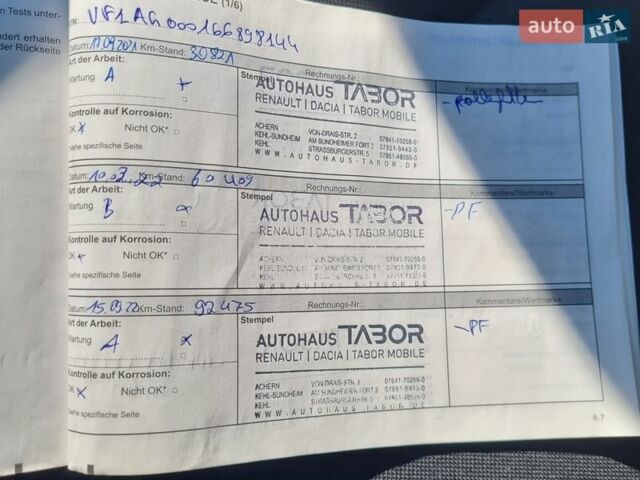 n Tests unter-
(1/6)
ndert erhalten
der Rückseite
VF1AG000166898144
auto RIA.com
Datum: 17.09.2021 Km-Stand: 30821
Art der Arbeit:
Wartung A
Kontrolle auf Korrosion:
OK x Nicht OK* □
siehe spezifische Seite
Stempel
Rechnungs-Nr.:
AUTOHAUS TABOR
RENAULT | DACIA | TABOR MOBILE
ACHERN VON-DRAIS-STR. 2 07841-70258-0
KEHL-SUNDHEIM AM SUNDHEIMER FORT 2 07851-9443-0
KEHL STRASSBURGERSTR. 5 07851-48555-0
WWW.AUTOHAUS-TABOR.DE
Kommentare/Wertmarke
-Pollenfilter
Datum: 10.03.22 Km-Stand: 60409
Art der Arbeit:
Wartung B
Kontrolle auf Korrosion:
OK x Nicht OK* □
siehe spezifische Seite
Stempel
Rechnungs-Nr.:
AUTOHAUS TABOR
RENAULT | DACIA | TABOR MOBILE
ACHERN VON-DRAIS-STR. 2
KEHL-SUNDHEIM AM SUNDHEIMER FORT 2
KEHL
WWW.AUTOHAUS-TABOR.DE
Kommentare/Wertmarke
-PF
Datum: 15.09.22 Km-Stand: 92475
Art der Arbeit:
Wartung A x
Kontrolle auf Korrosion:
OK x Nicht OK* □
siehe spezifische Seite
Stempel
Rechnungs-Nr.:
AUTOHAUS TABOR
RENAULT | DACIA | TABOR MOBILE
ACHERN VON-DRAIS-STR. 2 07841-70258-0
KEHL-SUNDHEIM AM SUNDHEIMER FORT 2
KEHL STRASSBURGERSTR. 5
WWW.AUTOHAUS TABOR.DE
Kommentare/Wertmarke
-PF
6.7